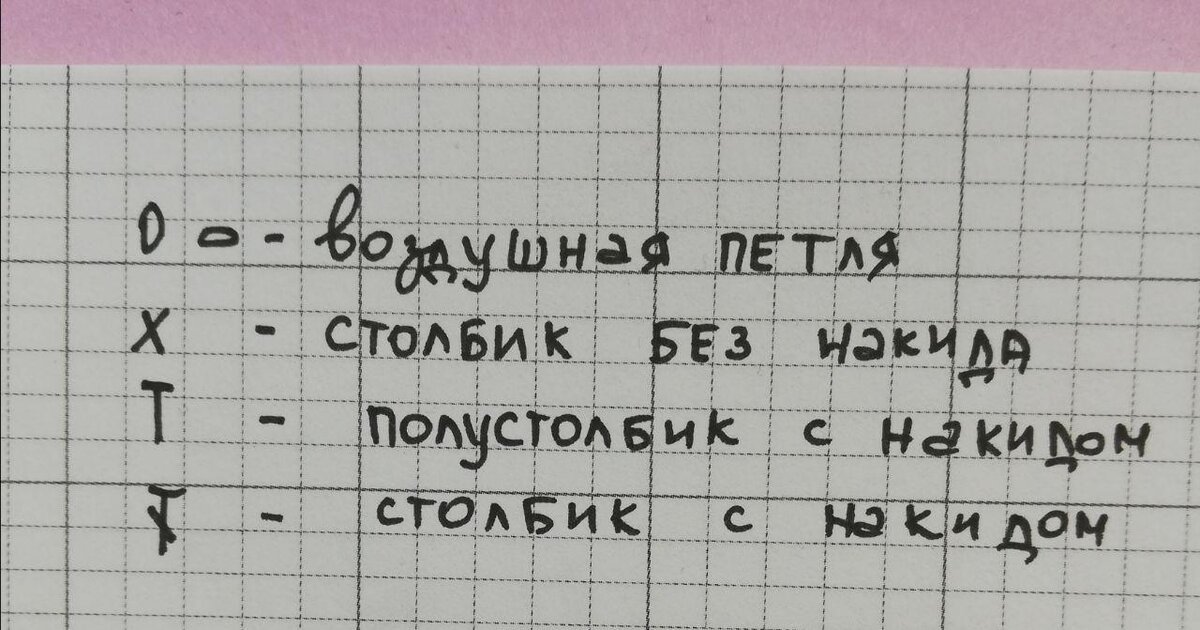 0 o - воздушная петля
X - столбик без накида
T - полустолбик с накидом
Ŧ - столбик с накидом